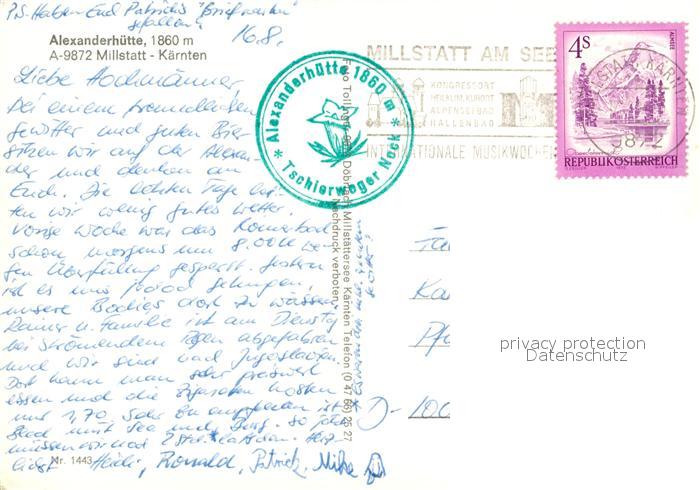 P.S. Haben End Patricks "Briefmarken"
gefallen?
16.8.
Alexanderhütte, 1860 m
A-9872 Millstatt - Kärnten
Liebe Hochmänner
Bei einem
gewitter und guten Bier
sitzen wir auf der Alexan-
der und denken an
Euch. Die letzten Tage hat-
ten wir wenig gutes Wetter.
Vorige Woche war das Römerbad
schon morgens um 8.00 h we-
gen Überfüllung gesperrt. Gestern
ist es uns gelungen,
unsere Bodies dort zu wässern
Rainer u. Familie ist am Dienstag
bei strömendem Regen abgefahren
und wir sind nach Jugoslawien.
Dort kann man sehr preiswert
essen und die Zigaretten kosten
nur 1,70. Sehr zu empfehlen ist
Bled mit See und Burg. So jetzt
müssen wir
Heidi, Ronald, Patrick, Mike
Nr. 1443
* Alexanderhütte 1860 m *
Tschierweger Nock
Döbriach Millstättersee Kärnten Telefon (0 42 46) 78 27
Nachdruck verboten
MILLSTATT AM SEE
KONGRESSORT
HEILKLIM. KURORT
ALPENSEEBAD
HALLENBAD
INTERNATIONALE MUSIKWOCHEN
4 S
ALMSEE
REPUBLIK ÖSTERREICH
MILLSTATT, KÄRNTEN
9872
Fa
Ka
Pfa
D-
privacy protection
Datenschutz